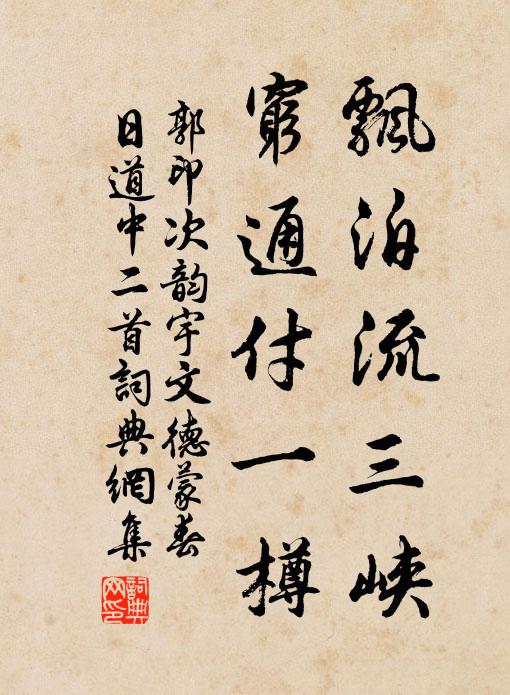 飄泊流三峽
窮通付一樽
郭印次韵宇文德蒙春
日道中二首詞典網集
詞典網印